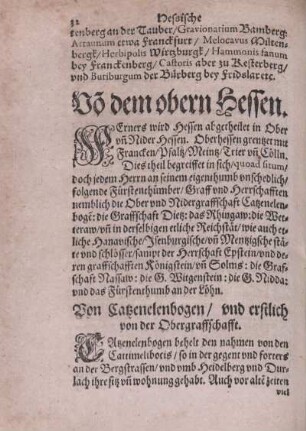 32 Hessische
tenberg an der Tauber/Gravionarium Bamberg:
Artaunum etwa Franckfurt/ Melocavus Milten-
bergk/Herbipolis Wirtzburgk/Hammonis fanum
bey Franckenberg/ Castoris aber zu Kesterberg
vnd Butiburgum der Bürberg bey Fridslar etc.
Võ dem obern Hessen.
FErners wird Hessen abgetheilet in Ober
vñ Nider Hessen. Oberhessen grentzet mit
Francken/Pfaltz/Meintz/Trier vñ Cölln.
Dies theil begreiffet in sich/quoad situm/
doch jedem Herrn an seinem eigenthumb vnschedlich/
folgende Fürstenthümber/Graff vnd Herrschafften
nemblich die Ober vnd Nidergraffschafft Catzenelen-
bogē: die Graffschafft Dietz: das Rhingaw: die Wet-
teraw/vñ in derselbigen etliche Reichstät/wie auch et-
liche Hanawische/Isenburgische/vñ Mentzigsche stä-
te vnd schlösser/sampt der Herrschafft Epstein/vnd de-
ren graffschafften Königstein/vñ Solms: die Graf-
schafft Nassaw: die G. Witgenstein: die G. Nidda:
vnd das Fürstenthumb an der Löhn.
Von Catzenelenbogen/ vnd erstlich
von der Obergraffschafft.
CAtzenelenbogen behelt den nahmen von den
Cattimelibocis/ so in der gegent vnd forters
an der Bergstrassen/vnd vmb Heidelberg vnd Dur-
lach ihre sitz vñ wohnung gehabt. Auch vor altē zeiten
viel